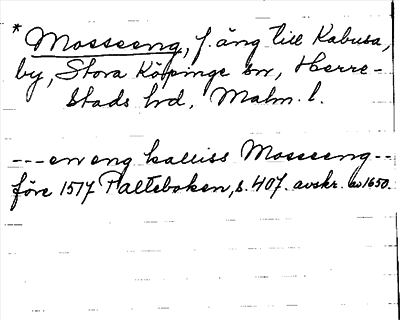 * Mosseeng, f. äng till Kabusa,
by, Stora Köpinge sn, Herre-
stads hd, Malm. l.
--- en eng kalliss Mosseeng --
före 1517 Palteboken, s. 407. avskr. av 1650.